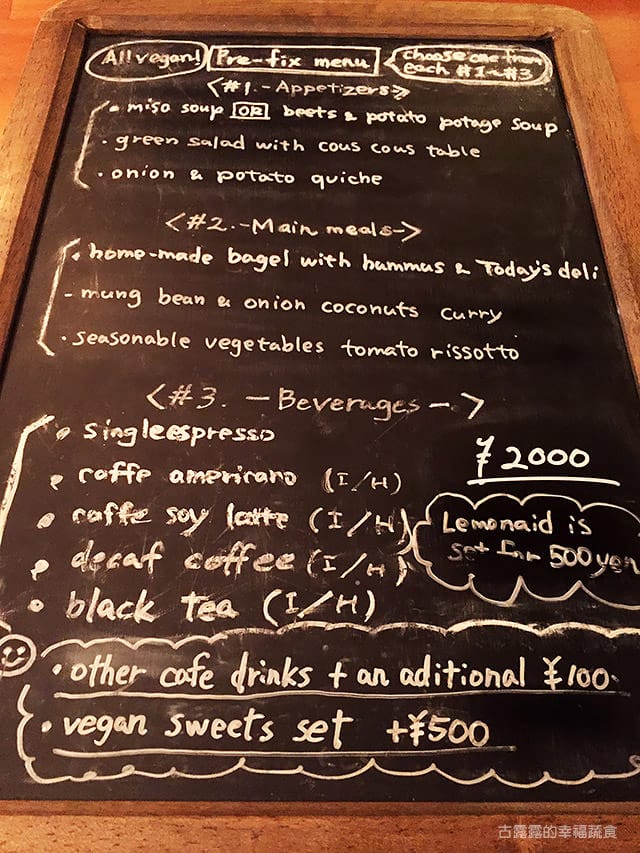 All vegan! Pre-fix menu choose one from each #1~#3
<#1.-Appetizers>
• miso soup OR beets & potato potage soup
• green salad with cous cous table
• onion & potato quiche
<#2.-Main meals->
• home-made bagel with hammus & Today's deli
- mung bean & onion coconuts curry
• seasonable vegetables tomato rissotto
<#3. - Beverages - >
• single espresso
• caffe americano (I/H)
• caffe soy latte (I/H)
• decaf coffee (I/H)
• black tea (I/H)
¥2000
Lemonaid is
set 500 yen
• other cafe drinks + an aditional ¥100
• vegan sweets set +¥500
古露露的幸福蔬食